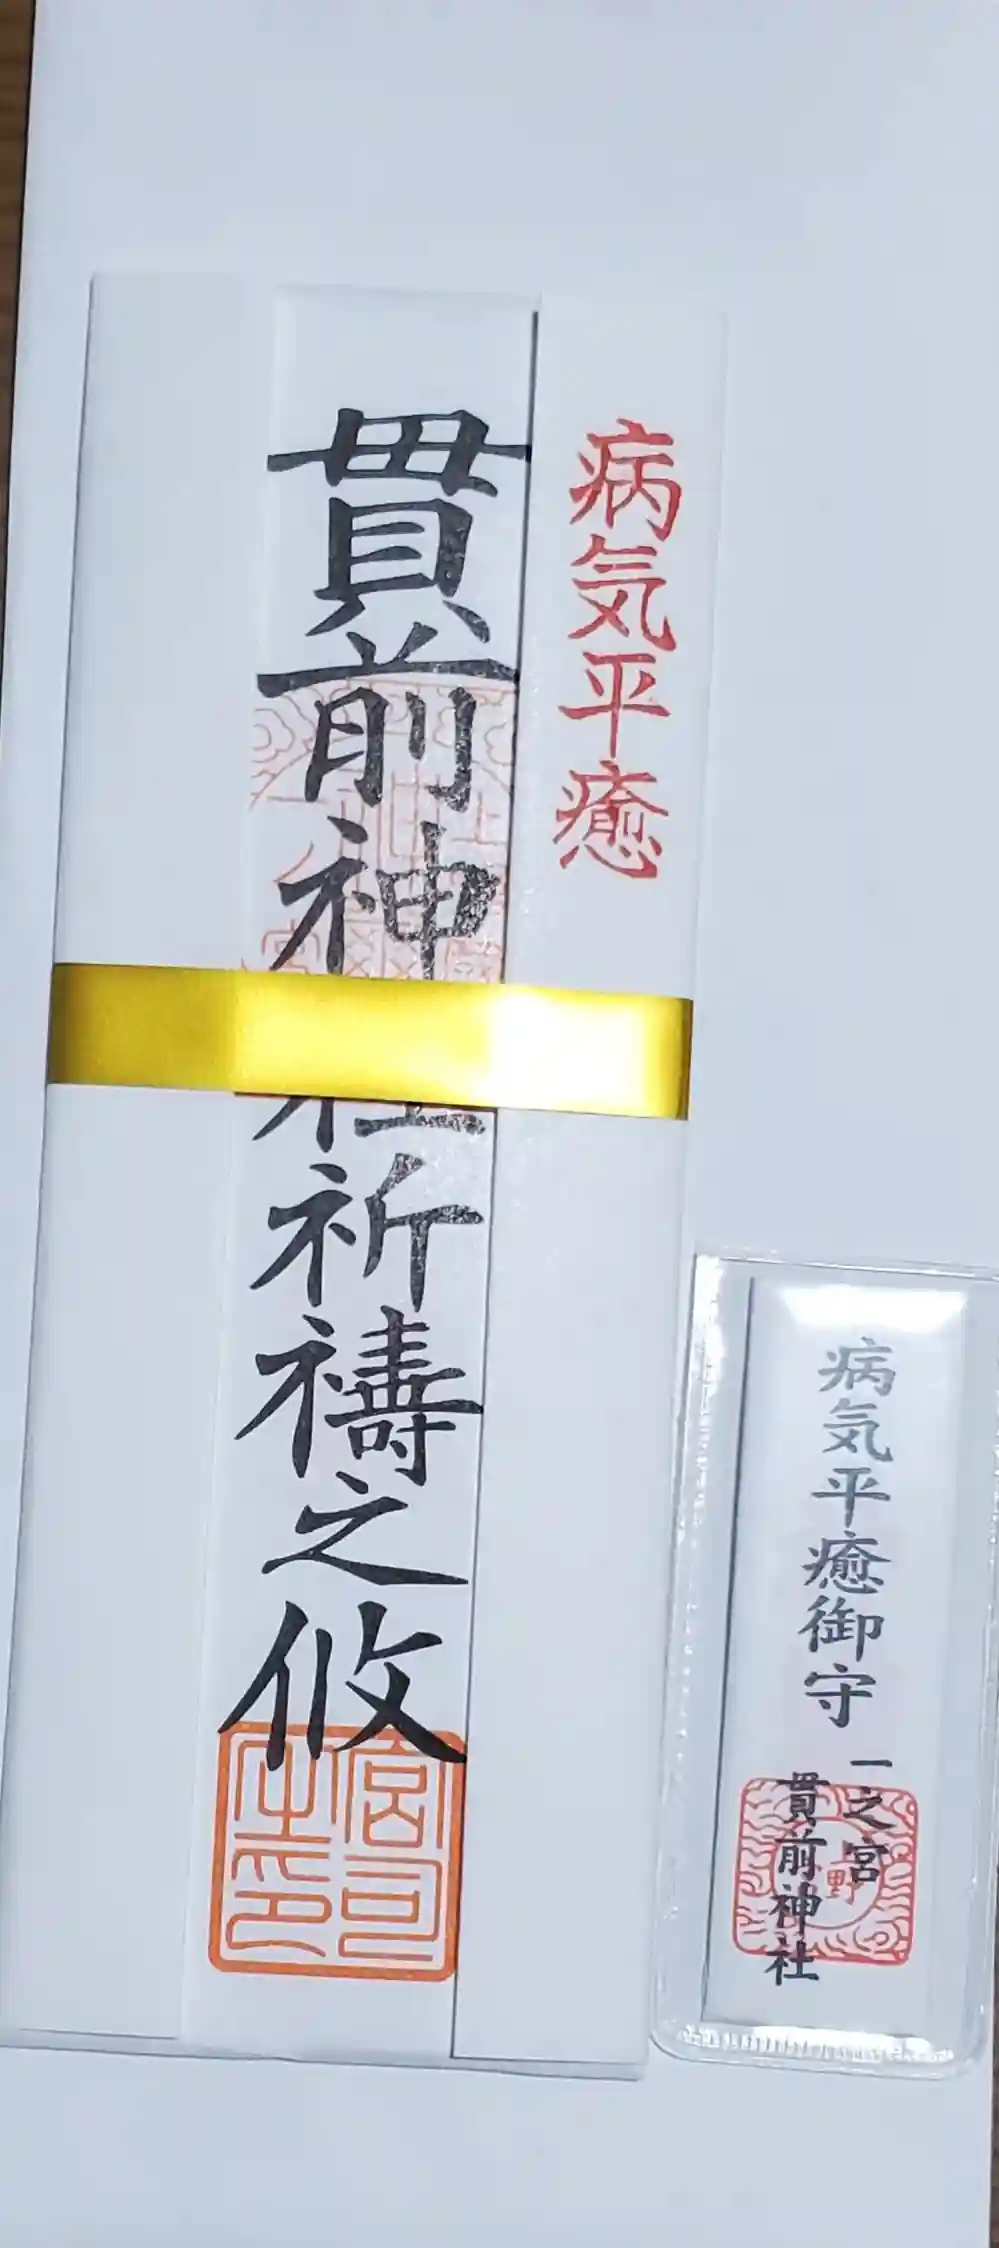 病気平癒
貫前神社祈禱之攸
宮司之印
病気平癒御守
一之宮
貫前神社